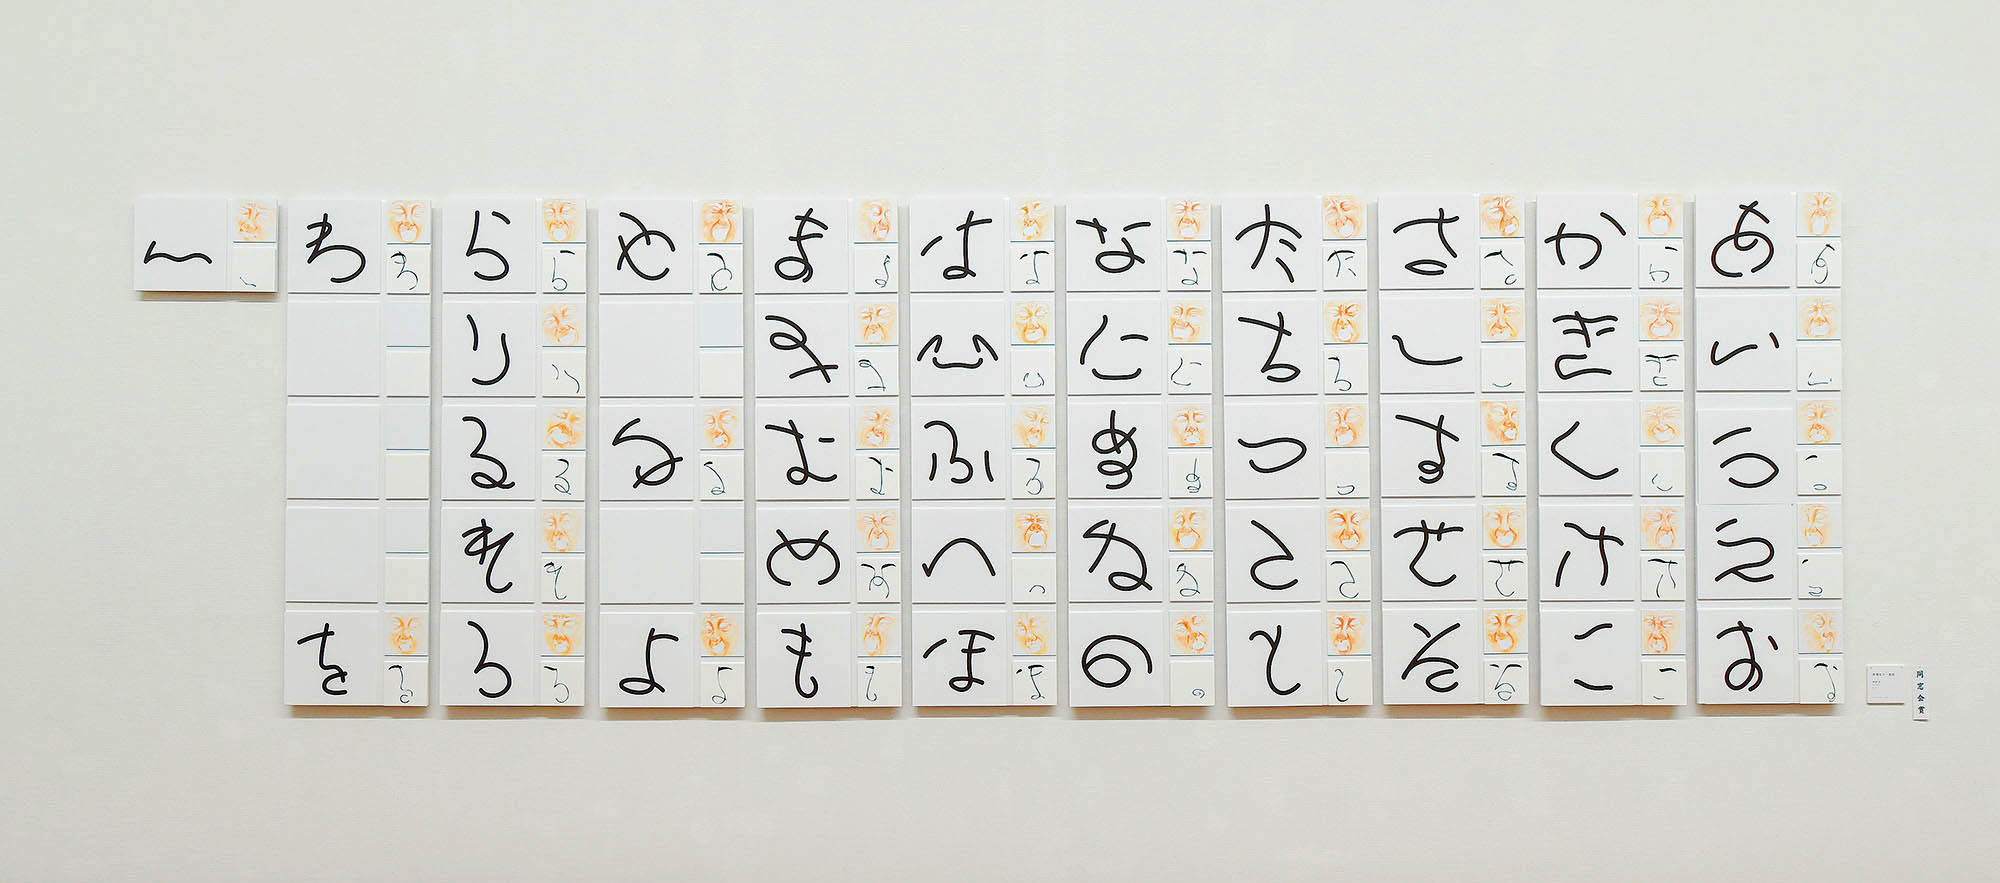 あいうえお
かきくけこ
さしすせそ
たちつてと
なにぬねの
はひふへほ
まみむめも
やゆよ
らりるれろ
わを
ん
同窓会賞